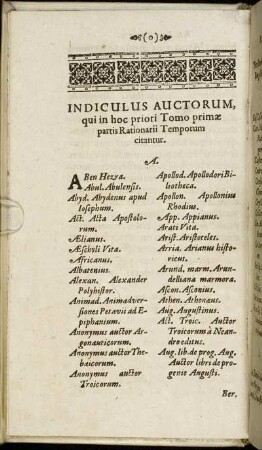 (0)
INDICULUS AUCTORUM,
qui in hoc priori Tomo primæ
partis Rationarii Temporum
citantur.
A.
ABen Hezra.
Abul. Abulensis.
Abyd. Abydenus apud
Iosephum.
Act. Acta Apostolo-
rum.
Ælianus.
Æschyli Vita.
Africanus.
Albatenius.
Alexan. Alexander
Polyhistor.
Animad. Animadver-
siones Petavii ad E-
piphanium.
Anonymus auctor Ar-
gonauticorum.
Anonymus auctor The-
baicorum.
Anonymus auctor
Troicorum.
Apollod. Apollodori Bi-
bliotheca.
Apollon. Apollonius
Rhodius.
App. Appianus.
Arati Vita.
Arist. Aristoteles.
Arria. Arianus histo-
ricus.
Arund. marm. Arun-
delliana marmora.
Ascon. Asconius.
Athen. Athenæus.
Aug. Augustinus.
Act. Troic. Auctor
Troicorum à Nean-
dro editus.
Aug. lib. de prog. Aug.
Auctor libri de pro-
genie Augusti.
Ber.